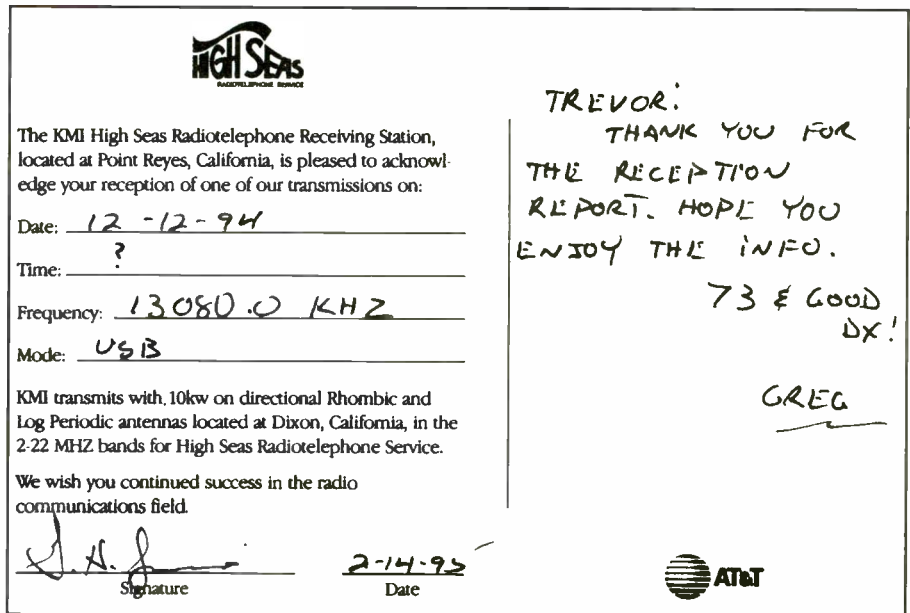 HIGH SEAS
RADIOTELEPHONE SERVICE
The KMI High Seas Radiotelephone Receiving Station,
located at Point Reyes, California, is pleased to acknowl-
edge your reception of one of our transmissions on:
Date: 12-12-94
Time: ?
Frequency: 13080.0 KHZ
Mode: USB
KMI transmits with 10kw on directional Rhombic and
Log Periodic antennas located at Dixon, California, in the
2-22 MHZ bands for High Seas Radiotelephone Service.
We wish you continued success in the radio
communications field.
2-14-95
Signature
Date
TREVOR:
THANK YOU FOR
THE RECEPTION
REPORT. HOPE YOU
ENJOY THE INFO.
73 & GOOD
DX!
GREG
AT&T